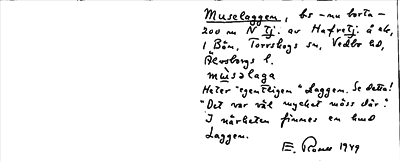 Muselaggem, bs - nu borta -
200 m N Tj. av Hafretj. å äg,
i Bön, Torrskogs sn, Vedbo hd,
Älvsborgs l.
müsəlaga
Heter "egentligen" Laggem. Se detta!
"Det var väl mycket möss där."
I närheten finnes en hmd
Laggem.
E. 1949